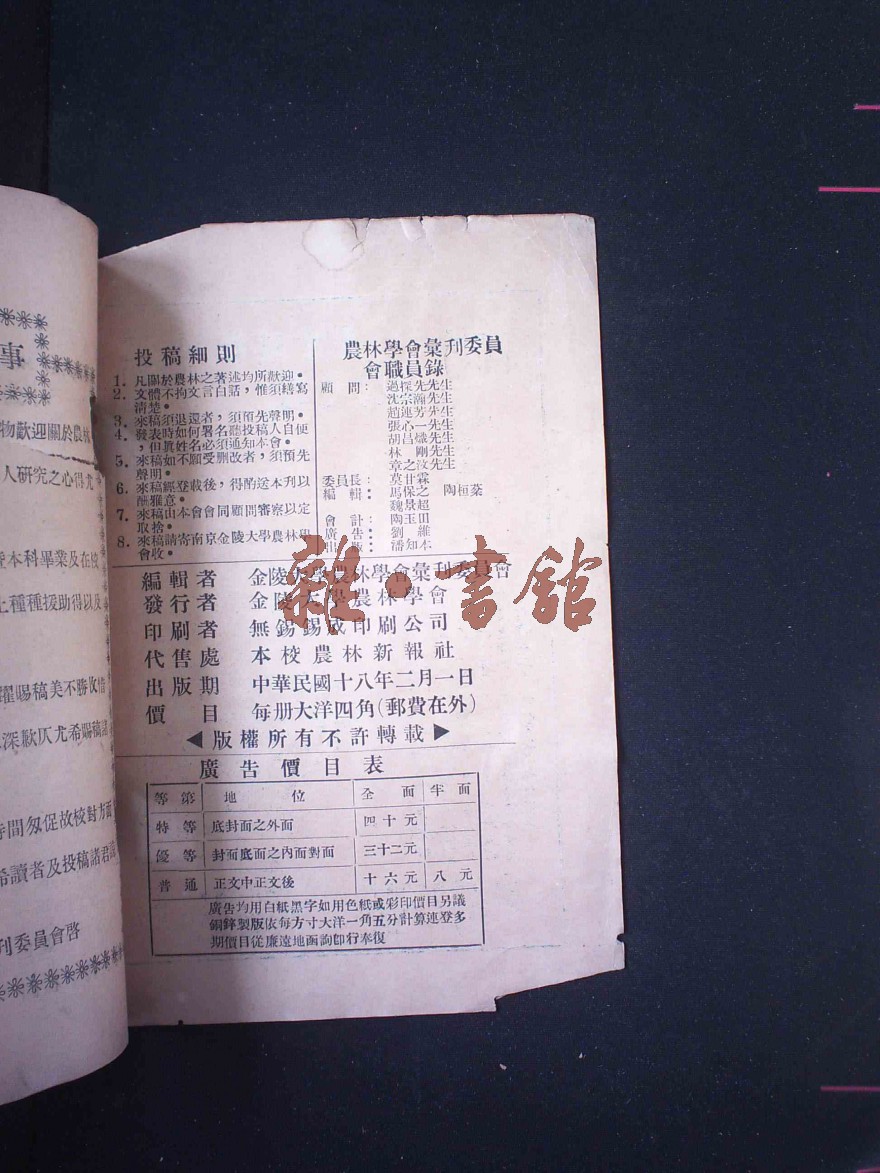 事
物歡迎關於農林
人研究之心得尤
本科畢業及在校
上種種援助得以及
躍賜稿美不勝收惜
深歉仄尤希賜稿諸
時間匆促故校對方面
希讀者及投稿諸君
刊委員會啓
投稿細則
1. 凡關於農林之著述均所歡迎。
2. 文體不拘文言白話，惟須繕寫
清楚。
3. 來稿須退還者，須預先聲明。
4. 發表時如何署名聽投稿人自便
，但眞姓名必須通知本會。
5. 來稿如不願受删改者，須預先
聲明。
6. 來稿經登載後，得酌送本刊以
酬雅意。
7. 來稿由本會會同顧問審察以定
取捨。
8. 來稿請寄南京金陵大學農林學
會收。
農林學會彙刋委員
會職員錄
顧問：過探先先生
沈宗瀚先生
趙連芳先生
張心一先生
胡昌熾先生
林剛先生
章之汶先生
委員長：莫甘霖
編輯：馬保之 陶桓棻
魏景超
會計：陶玉田
廣告：劉維
出版：潘知本
編輯者 金陵大學農林學會彙刋委員會
發行者 金陵大學農林學會
印刷者 無錫錫成印刷公司
代售處 本校農林新報社
出版期 中華民國十八年二月一日
價目 每册大洋四角(郵費在外)
◀版權所有不許轉載▶
廣告價目表
等第 地位 全面 半面
特等 底封面之外面 四十元
優等 封面底面之內面對面 三十二元
普通 正文中正文後 十六元 八元
廣告均用白紙黑字如用色紙或彩印價目另議
銅鋅製版依每方寸大洋一角五分計算連登多
期價目從廉遠地函詢卽行奉復
雜·書館